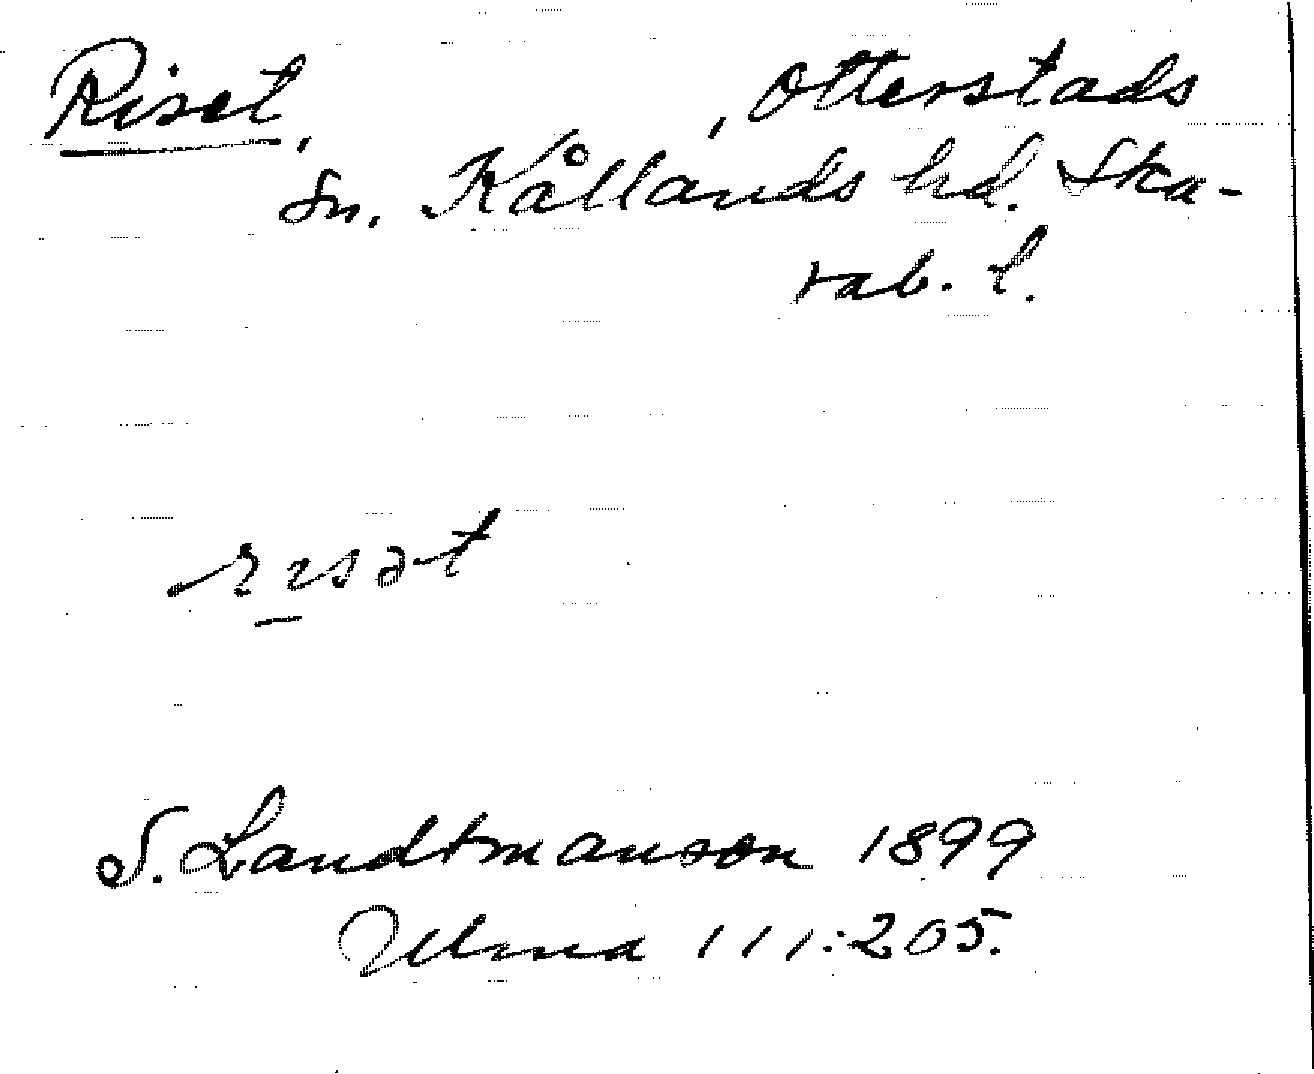 Riset, , Otterstads
sn. Kållands hd. Ska-
rab. l.
rısət
S. Landtmanson 1899
Ulma 111:205.